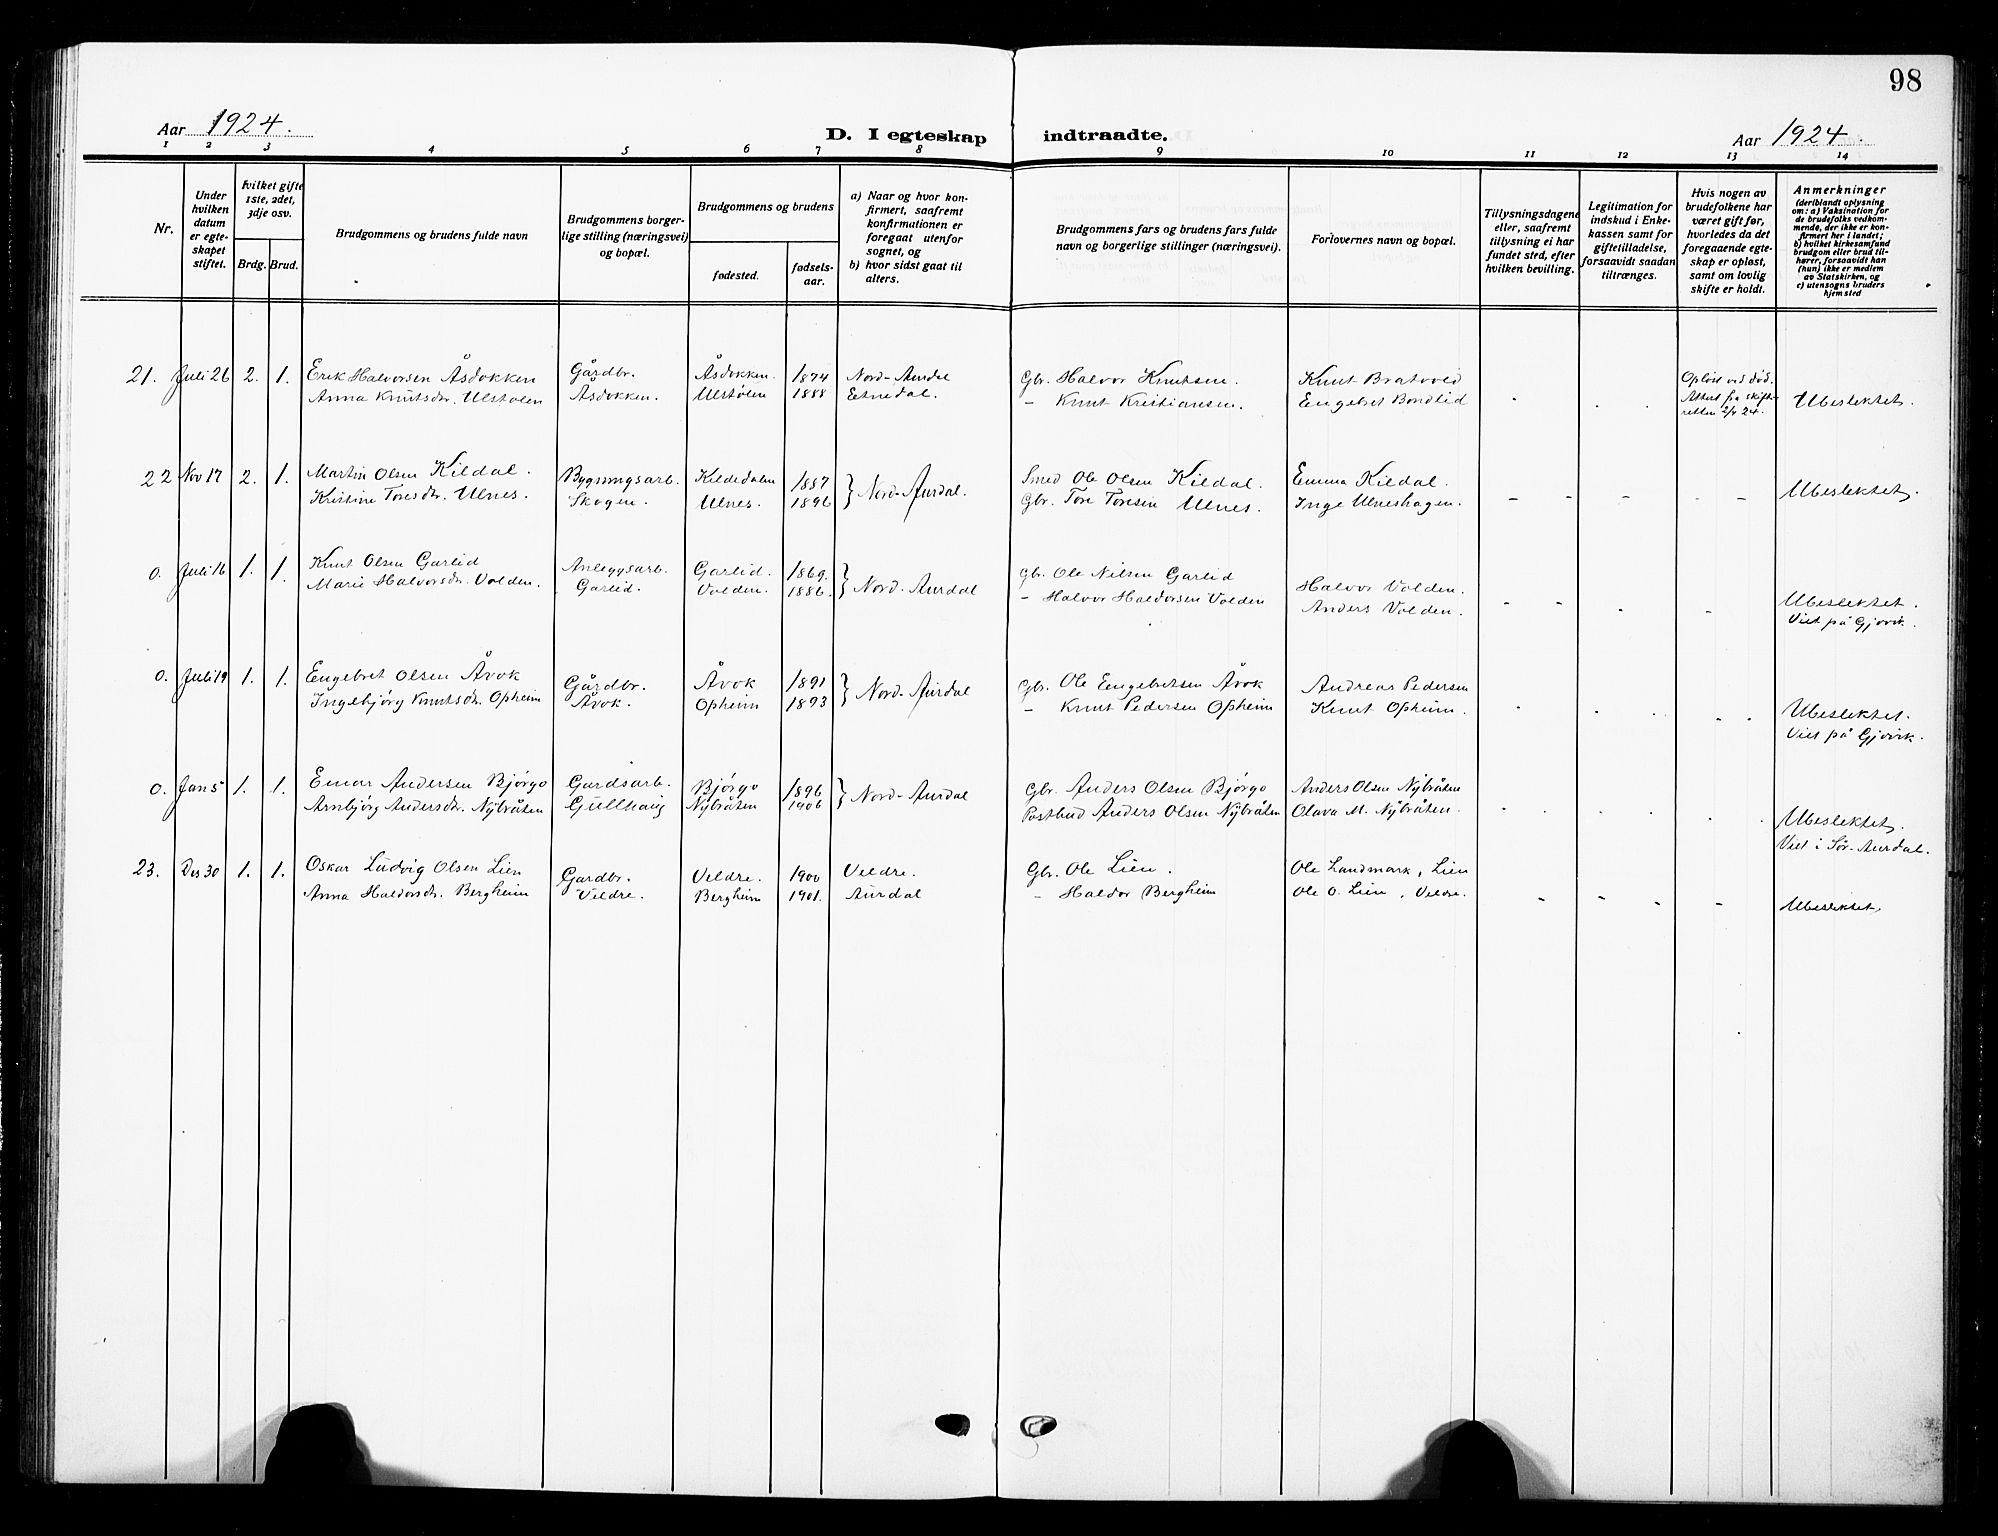 98
Aar 1924.
D. I egteskap indtraadte.
Aar 1924.
1 2 3 4 5 6 7 8 9 10 11 12 13 14
Nr.
Under hvilken datum er egteskapet stiftet.
hvilket gifte 1ste, 2det, 3dje osv.
Brdg. Brud.
Brudgommens og brudens fulde navn
Brudgommens borgerlige stilling (næringsvei) og bopæl.
Brudgommens og brudens
fødested.
fødselsaar.
a) Naar og hvor konfirmert, saafremt konfirmationen er foregaat utenfor sognet, og
b) hvor sidst gaat til alters.
Brudgommens fars og brudens fars fulde navn og borgerlige stillinger (næringsvei).
Forlovernes navn og bopæl.
Tillysningsdagene eller, saafremt tillysning ei har fundet sted, efter hvilken bevilling.
Legitimation for indskud i Enkekassen samt for giftetilladelse, forsaavidt saadan tiltrænges.
Hvis nogen av brudefolkene har været gift før, hvorledes da det foregaaende egteskap er opløst, samt om lovlig skifte er holdt.
Anmerkninger
(deriblandt oplysning om: a) Vaksination for de brudefolks vedkommende, der ikke er konfirmert her i landet; b) hvilket kirkesamfund brudgom eller brud tilhører, forsaavidt han (hun) ikke er medlem av Statskirken, og c) utensogns bruders hjemsted
21. Juli 26 2. 1. Erik Halvorsen Åsdokken Gårdbr. Åsdokken. 1874 Nord-Aurdal Gbr. Halvor Knutsen. Knut Bratvold Opløst ved død.
Anna Knutsdr. Ulstølen Åsdokken. Ulstølen 1888 Etnedal. - Knut Kristiansen. Engebret Bondlid Attest fra skifteretten 2/4 24. Ubeslektet.
22 Nov 17 2. 1. Martin Olsen Kildal. Bygningsarb. Kildedalen 1887 } Nord-Aurdal. Smed Ole Olsen Kildal. Emma Kildal.
Kristine Toresdr. Ulnes. Skogen. Ulnes. 1896 Gbr. Tore Toresen Ulnes. Inge Ulneshagen. - - - - Ubeslektet.
0. Juli 16 1. 1. Knut Olsen Garlid Anleggsarb. Garlid. 1869. } Nord-Aurdal Gbr. Ole Nilsen Garlid Halvor Volden.
Marie Halvorsdr. Volden. Garlid. Volden. 1886. - Halvor Haldorsen Volden Anders Volden. - - - - Ubeslektet.
Viet på Gjøvik.
0. Juli 19 1. 1. Engebret Olsen Åvok Gårdbr. Åvok 1891 } Nord-Aurdal Gbr. Ole Engebretsen Åvok Andreas Pedersen
Ingebjørg Knutsdr. Opheim Åvok. Opheim 1893 - Knut Pedersen Opheim Knut Opheim. Ubeslektet.
Viet på Gjøvik.
0. Jan 5 1. 1. Einar Andersen Bjørgo Gardsarb. Bjørgo 1896 } Nord-Aurdal Gbr. Anders Olsen Bjørgo Anders Olsen Nybråten
Arnbjørg Andersdr. Nybråten Gullhaug Nybråten 1906 Postbud Anders Olsen Nybråten Olava M. Nybråten. Ubeslektet.
Viet i Sør-Aurdal.
23. Des 30 1. 1. Oskar Ludvig Olsen Lien Gardbr. Veldre. 1900 Veldre. Gbr. Ole Lien. Ole Landmark, Lien
Anna Haldorsdr. Bergheim Veldre. Bergheim 1901. Aurdal - Haldor Bergheim Ole O. Lien, Veldre. - - - - Ubeslektet.